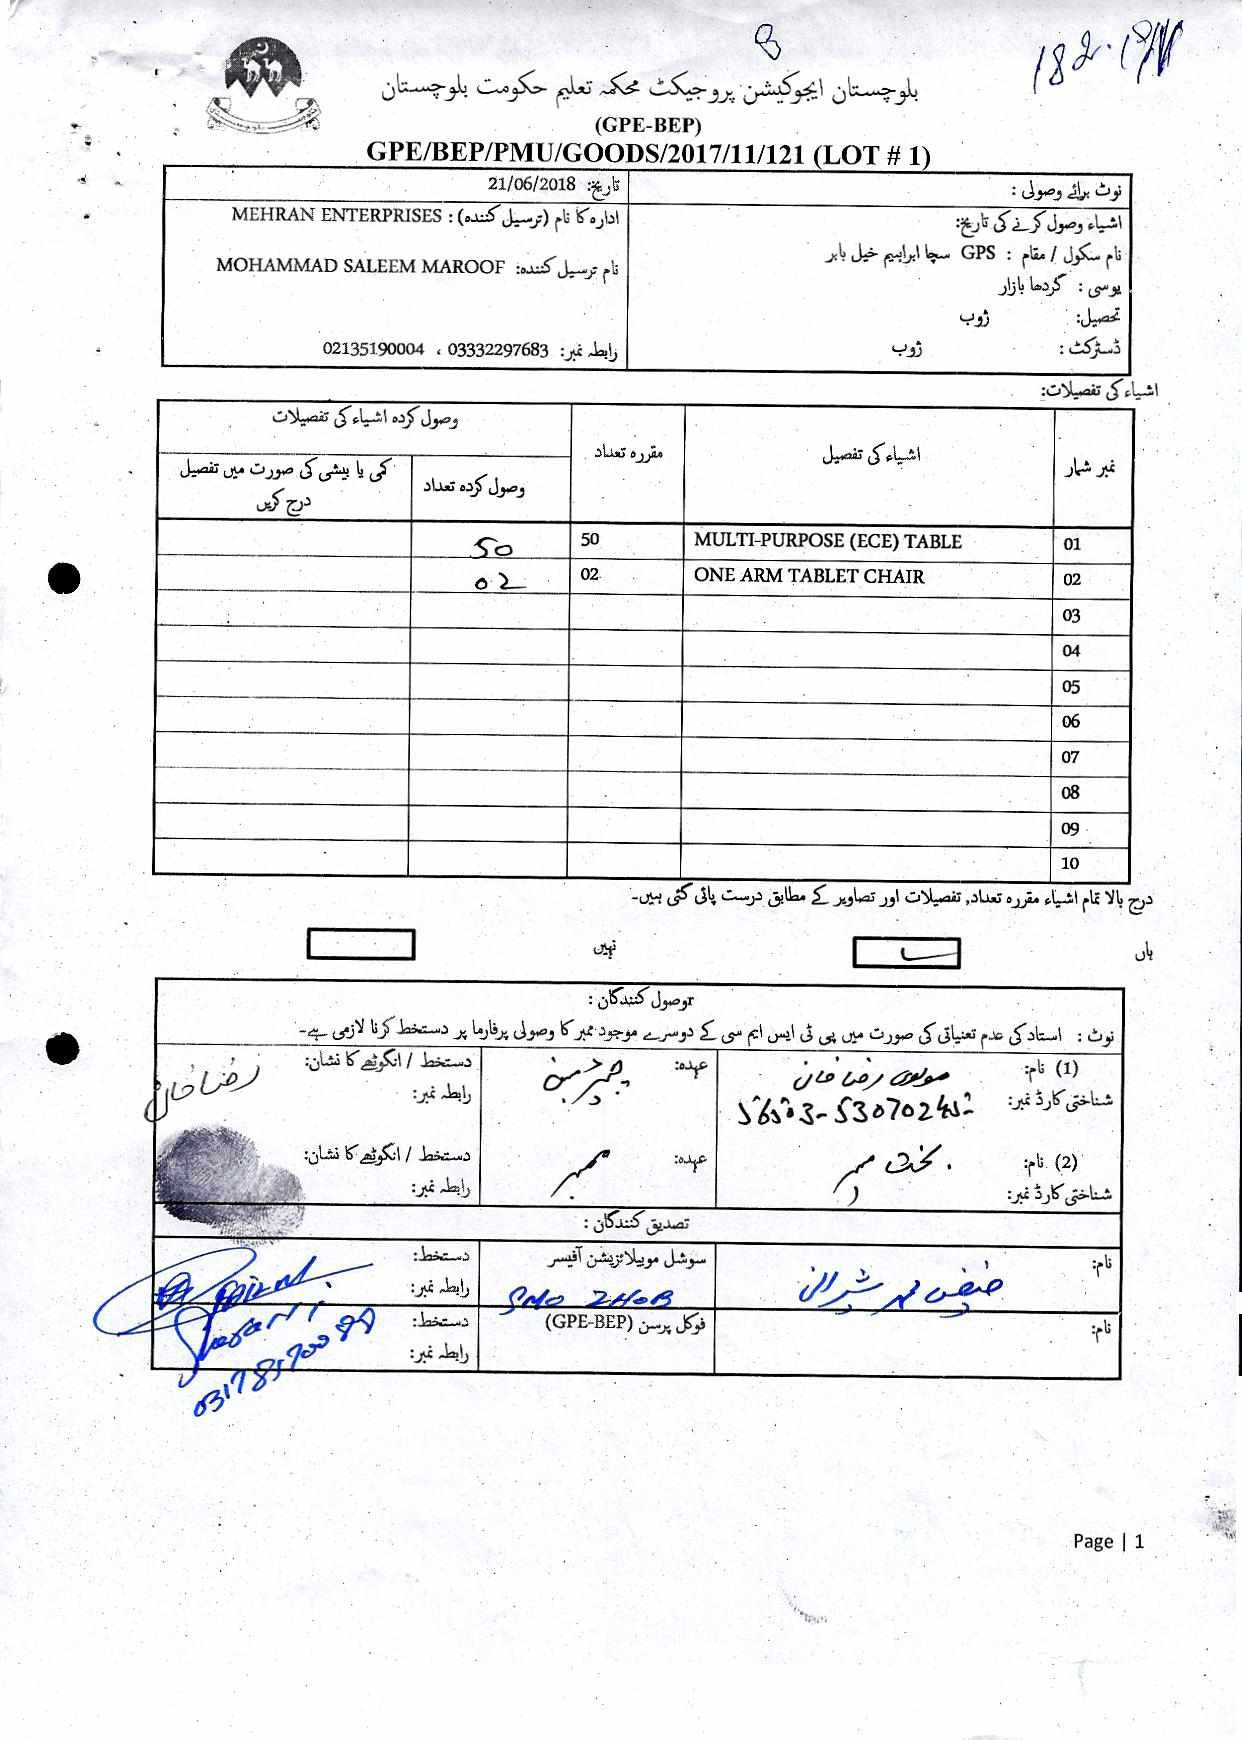 بلوچستان ایجوکیشن پروجیکٹ محکمہ تعلیم حکومت بلوچستان
(GPE-BEP)
GPE/BEP/PMU/GOODS/2017/11/121 (LOT # 1)
نوٹ برائے وصولی :
تاریخ: 21/06/2018
اشیاء وصول کرنے کی تاریخ:
ادارہ کا نام (ترسیل کنندہ) : MEHRAN ENTERPRISES
نام سکول / مقام : GPS سچا ابراہیم خیل بابر
نام ترسیل کنندہ: MOHAMMAD SALEEM MAROOF
یوسی : گردھا بازار
تحصیل: ژوب
ڈسٹرکٹ : ژوب
رابطہ نمبر: 03332297683 ، 02135190004
اشیاء کی تفصیلات:
نمبر شمار اشیاء کی تفصیل مقررہ تعداد وصول کردہ اشیاء کی تفصیلات
وصول کردہ تعداد کمی یا بیشی کی صورت میں تفصیل درج کریں
01 MULTI-PURPOSE (ECE) TABLE 50 50
02 ONE ARM TABLET CHAIR 02 02
03
04
05
06
07
08
09
10
درج بالا تمام اشیاء مقررہ تعداد, تفصیلات اور تصاویر کے مطابق درست پائی گئی ہیں۔
ہاں نہیں
وصول کنندگان :
نوٹ : استاد کی عدم تعنیاتی کی صورت میں پی ٹی ایس ایم سی کے دوسرے موجود ممبر کا وصولی پرفارما پر دستخط کرنا لازمی ہے۔
(1) نام: مولوی رضا خان عہدہ: چیرمین دستخط / انگوٹھے کا نشان: رضا خان
شناختی کارڈ نمبر: رابطہ نمبر:
(2) نام: بخت عہدہ: ممبر دستخط / انگوٹھے کا نشان:
شناختی کارڈ نمبر: رابطہ نمبر:
تصدیق کنندگان :
نام: شیرانی سوشل موبیلائزیشن آفیسر دستخط:
SMO ZHOB رابطہ نمبر:
نام: فوکل پرسن (GPE-BEP) دستخط:
رابطہ نمبر:
Page | 1